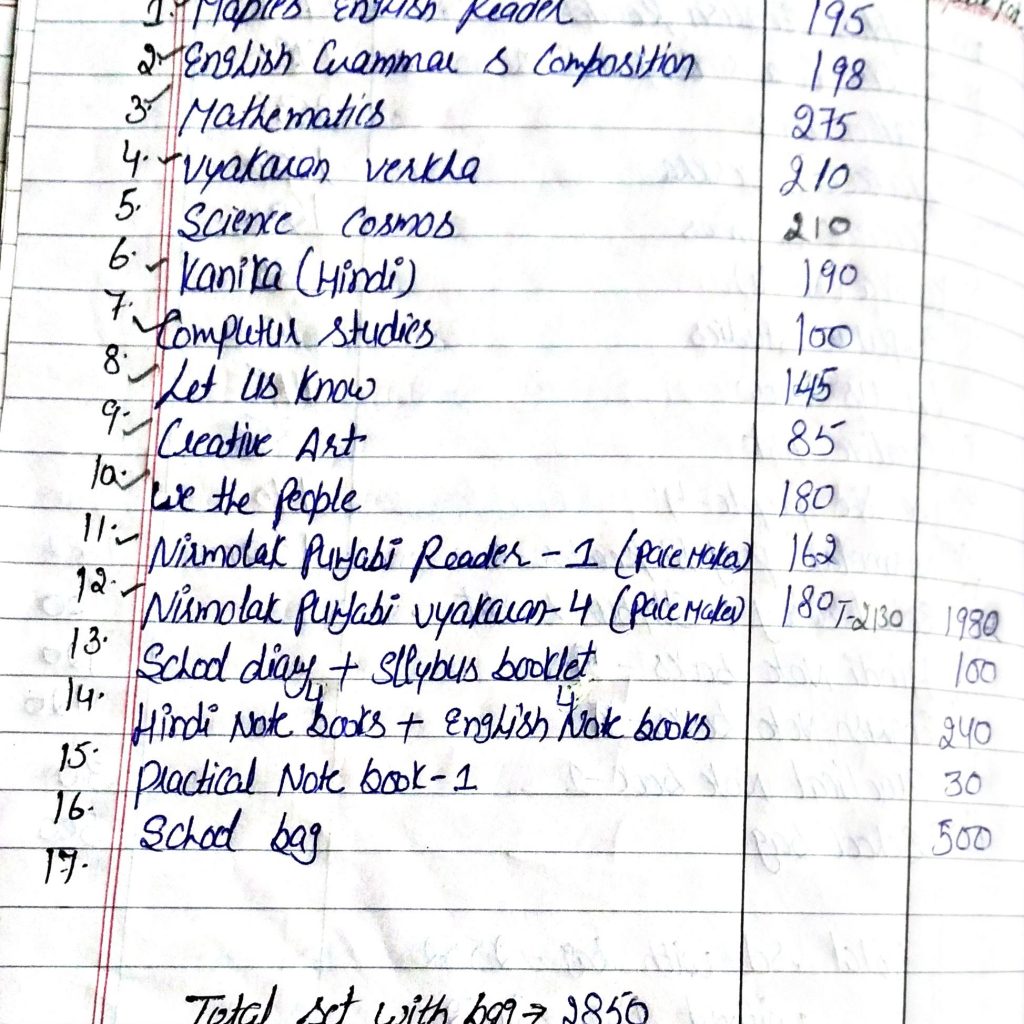 1. Maples English Reader 195
2. English Grammar & Composition 198
3. Mathematics 275
4. Vyakaran verkha 210
5. Science Cosmos 210
6. Kanika (Hindi) 190
7. Computer studies 100
8. Let Us Know 145
9. Creative Art 85
10. We the People 180
11. Nirmolak Punjabi Reader - 1 (Pace Maker) 162
12. Nirmolak Punjabi Vyakaran - 4 (Pace Maker) 180 T-2130 1980
13. School diary + Sllybus booklet 100
14. Hindi Note 4 books + English 4 Note books 240
15. Practical Note book - 1 30
16. School bag 500
17.
Total set with bag → 2850